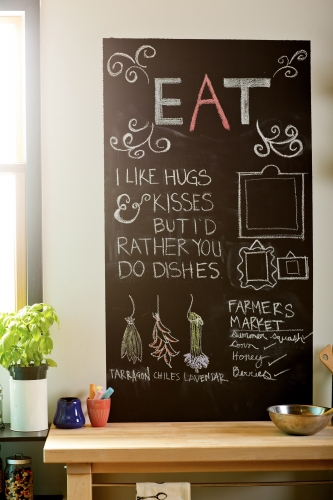 EAT
I LIKE HUGS
& KISSES
BUT I'D
RATHER YOU
DO DISHES
FARMERS
MARKET
Summer squash
Corn
Honey
Berries
TARRAGON CHILES LAVENDAR